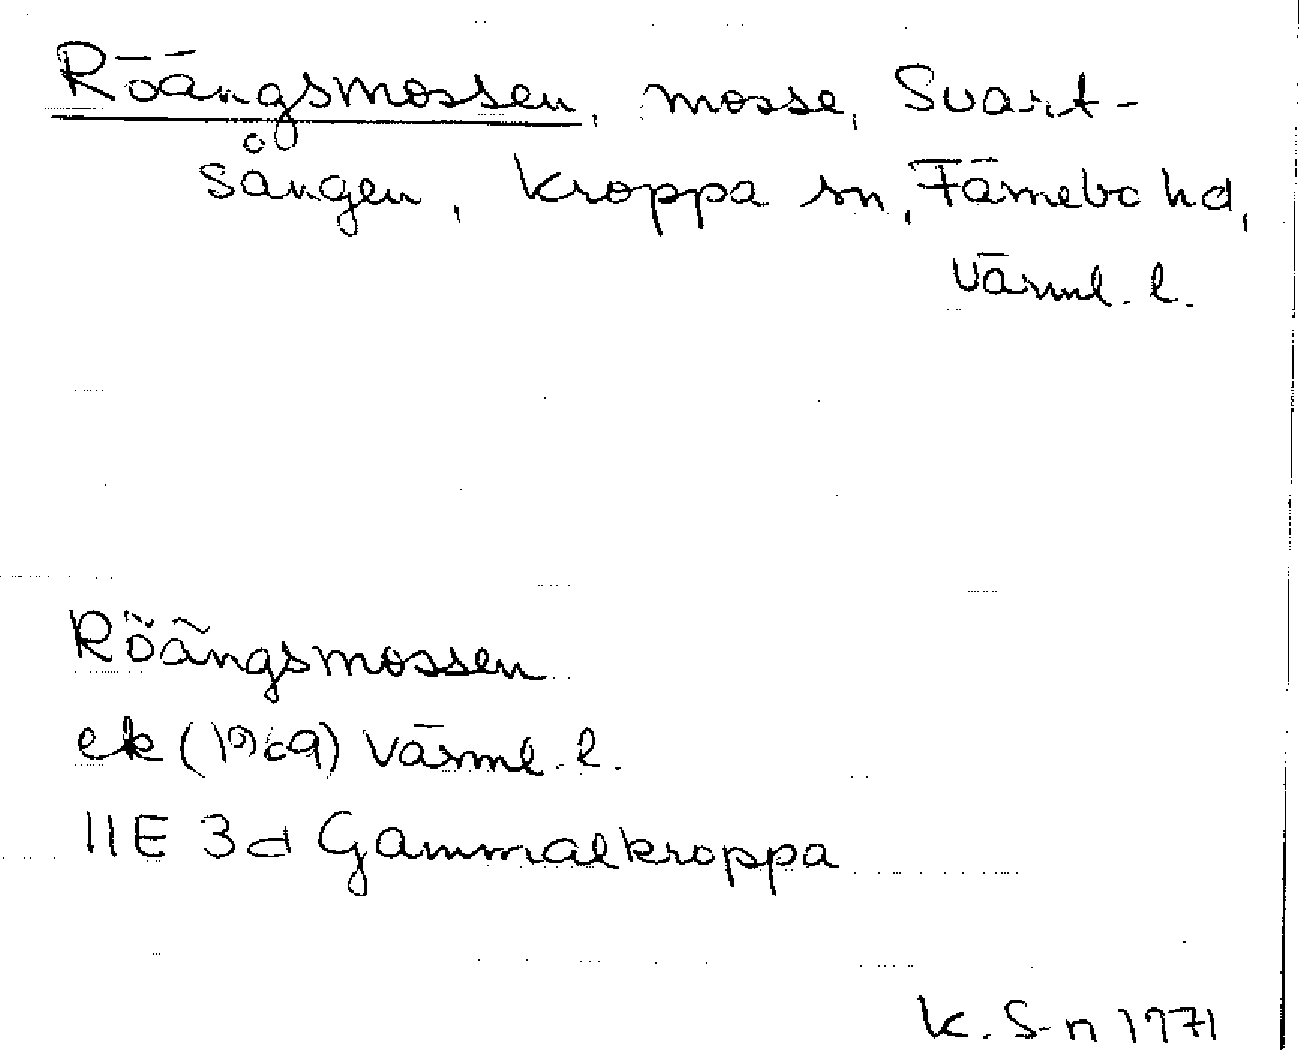 Röängsmossen, mosse, Svart-
sången, Kroppa sn, Färnebo hd,
Värml. l.
Röängsmossen
ek (1969) Värml. l.
11E 3d Gammalkroppa
K. S-n 1971